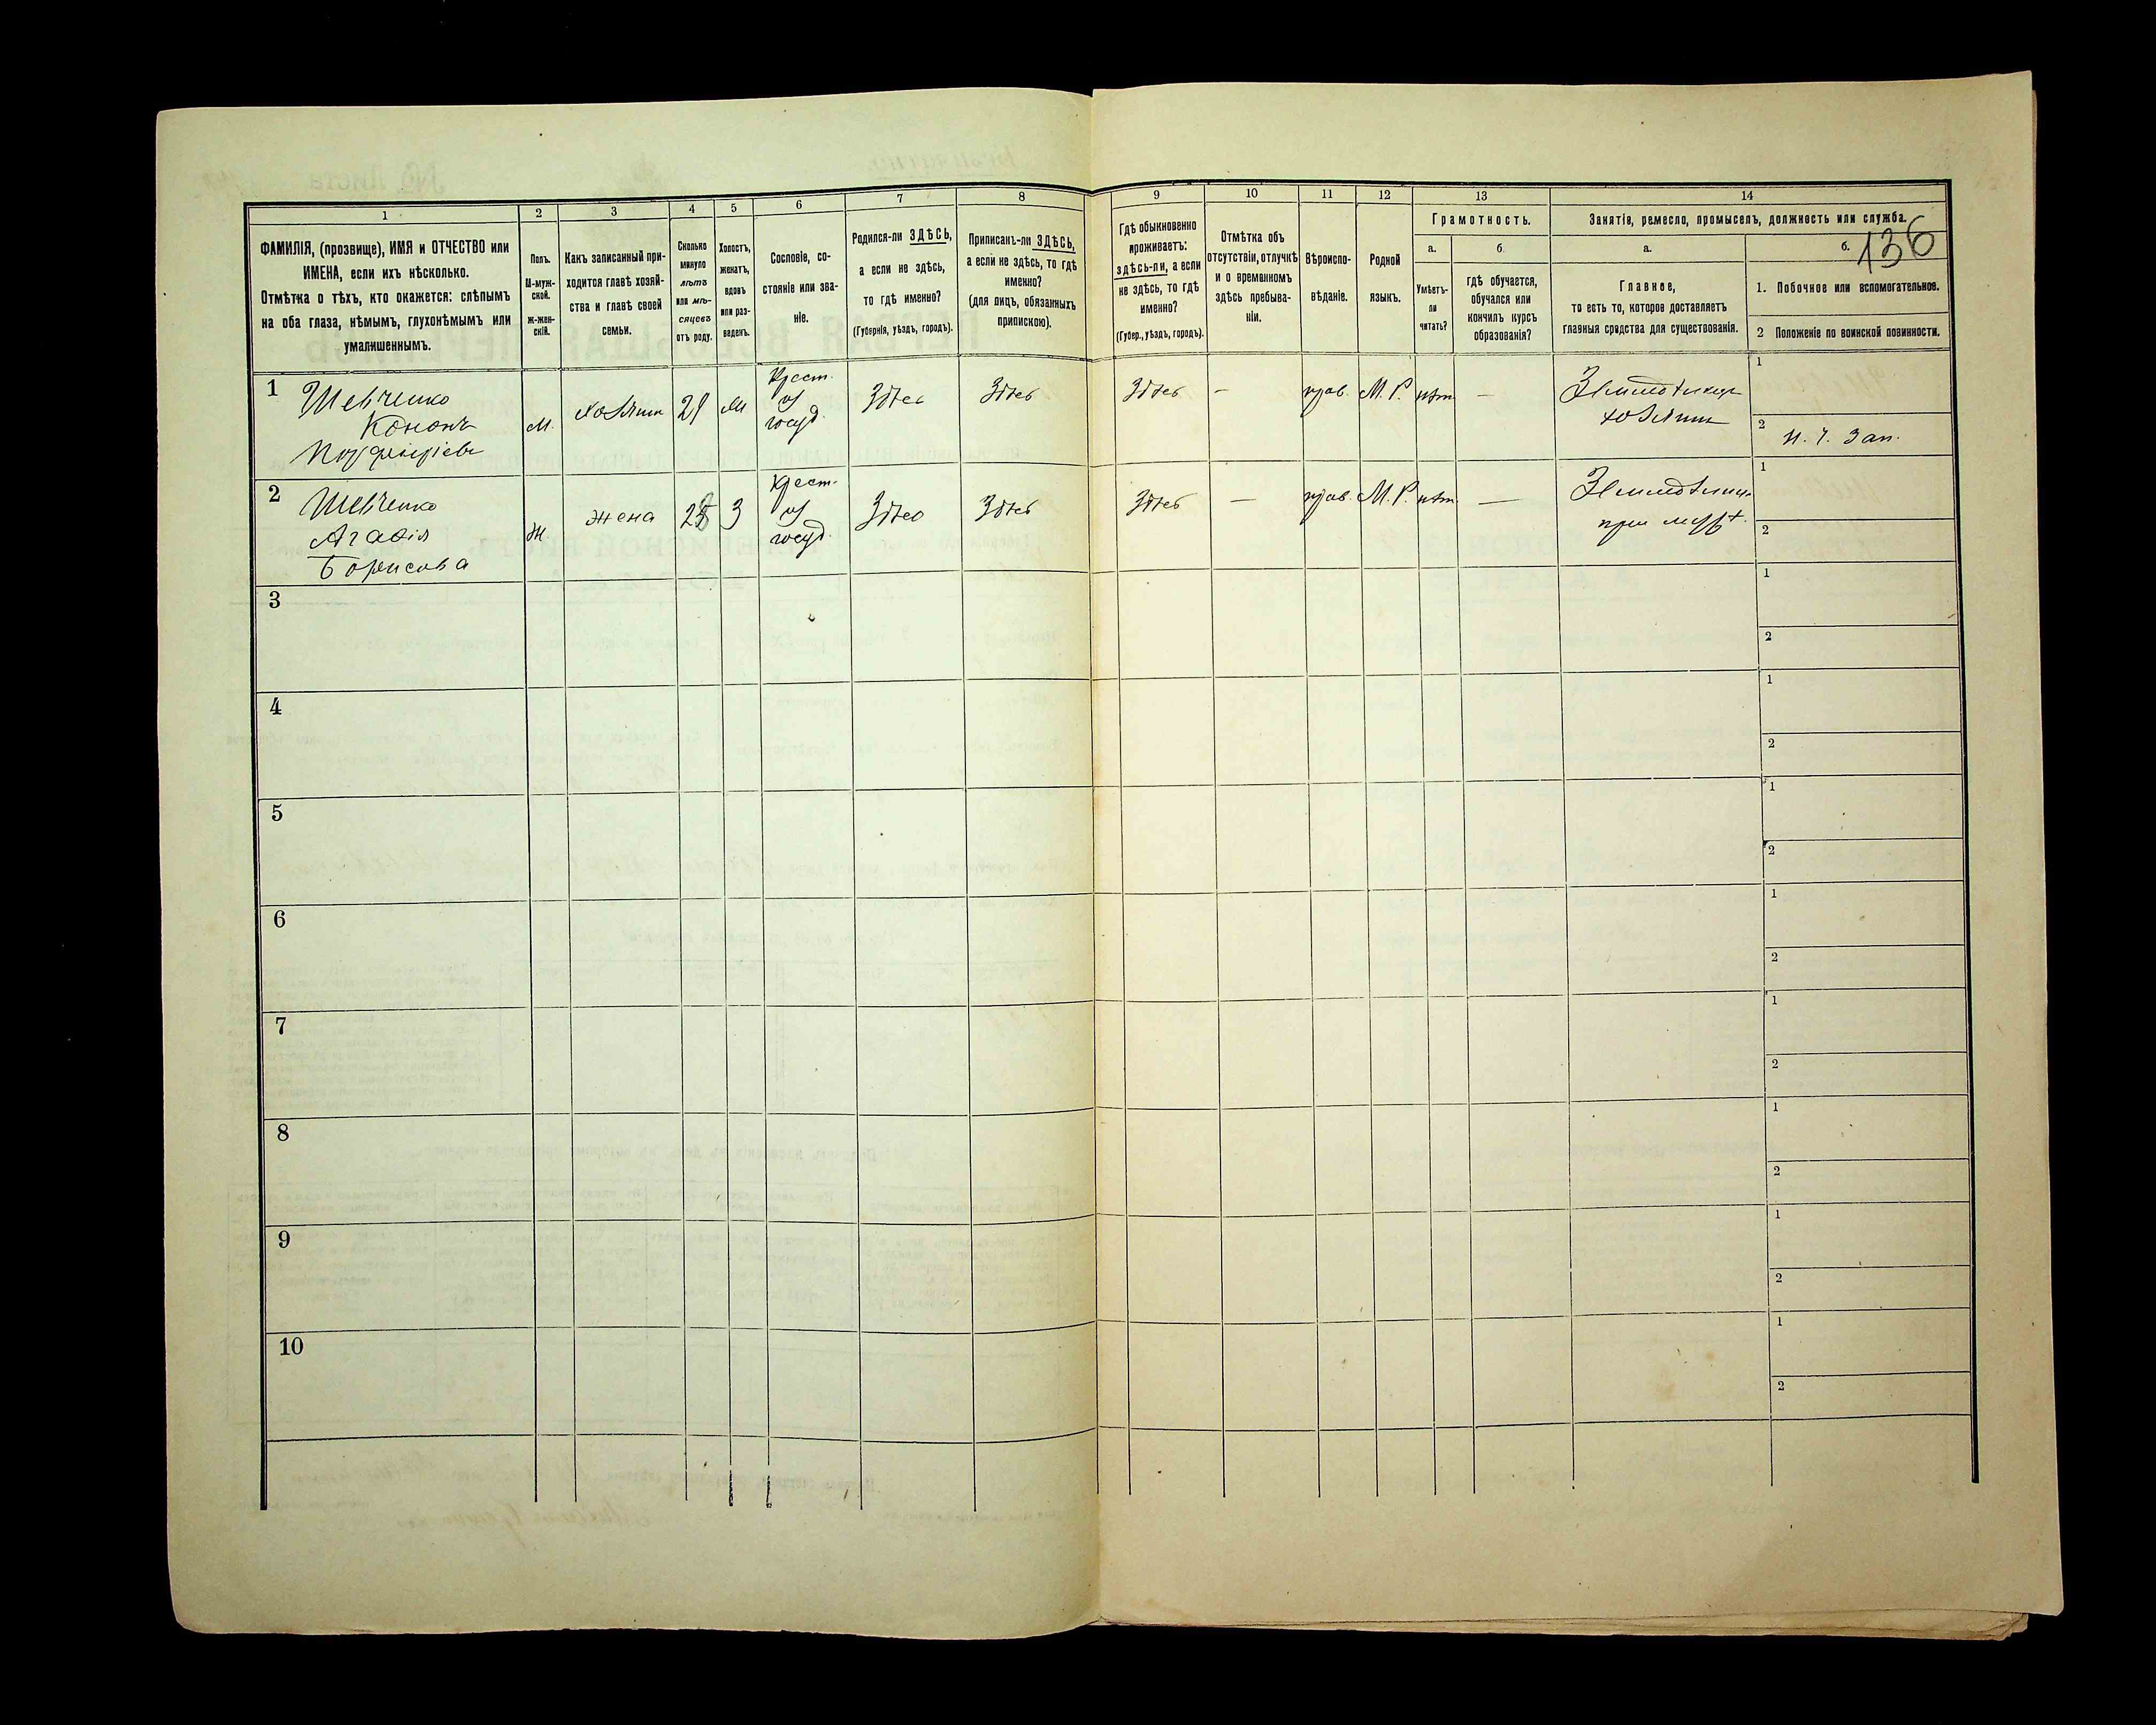 1 2 3 4 5 6 7 8 9 10 11 12 13 14
ФАМИЛІЯ, (прозвище), ИМЯ и ОТЧЕСТВО или
ИМЕНА, если ихъ нѣсколько.
Отмѣтка о тѣхъ, кто окажется: слѣпымъ
на оба глаза, нѣмымъ, глухонѣмымъ или
умалишеннымъ.
Полъ.
М-муж-
ской.
Ж-жен-
скій.
Какъ записанный при-
ходится главѣ хозяй-
ства и главѣ своей
семьи.
Сколько
минуло
лѣтъ
или мѣ-
сяцевъ
отъ роду.
Холостъ,
женатъ,
вдовъ
или раз-
веденъ.
Сословіе, со-
стояніе или зва-
ніе.
Родился-ли ЗДѢСЬ,
а если не здѣсь,
то гдѣ именно?
(Губернія, уѣздъ, городъ).
Приписанъ-ли ЗДѢСЬ,
а если не здѣсь, то гдѣ
именно?
(для лицъ, обязанныхъ
припискою).
Гдѣ обыкновенно
проживаетъ:
здѣсь-ли, а если
не здѣсь, то гдѣ
именно?
(Губер., уѣздъ, городъ).
Отмѣтка объ
отсутствіи, отлучкѣ
и о временномъ
здѣсь пребыва-
ніи.
Вѣроиспо-
вѣданіе.
Родной
языкъ.
Грамотность.
а.
Умѣетъ-
ли
читать?
б.
гдѣ обучается,
обучался или
кончилъ курсъ
образованія?
Занятія, ремесло, промыселъ, должность или служба.
136
а.
Главное,
то есть то, которое доставляетъ
главныя средства для существованія.
б.
1. Побочное или вспомогательное.
2 Положеніе по воинской повинности.
1
Шевченко
Кононъ
Порфиріевъ
М.
хозяинъ
М
Крест.
из
госуд.
Здѣсь
Здѣсь
Здѣсь
—
прав.
М. Р.
нѣт
—
Земледѣлецъ
хозяинъ
1
2
2
Шевченко
Агафія
Борисова
Ж
жена
З
Крест.
из
госуд.
Здѣсь
Здѣсь
Здѣсь
—
прав.
М. Р.
нѣт
—
при мужѣ.
1
2
3
1
2
4
1
2
5
1
2
6
1
2
7
1
2
8
1
2
9
1
2
10
1
2